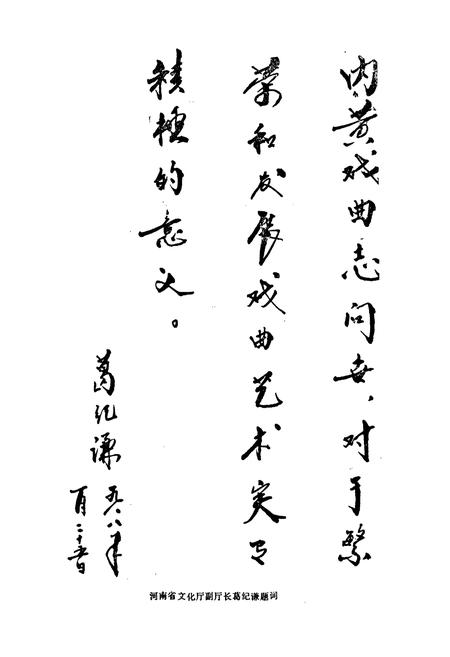 内黄戏曲志问世，对于繁
荣和发展戏曲艺术实有
積極的意义。
葛纪谦
一九八八年
一月二十五日
河南省文化厅副厅长葛纪谦题词